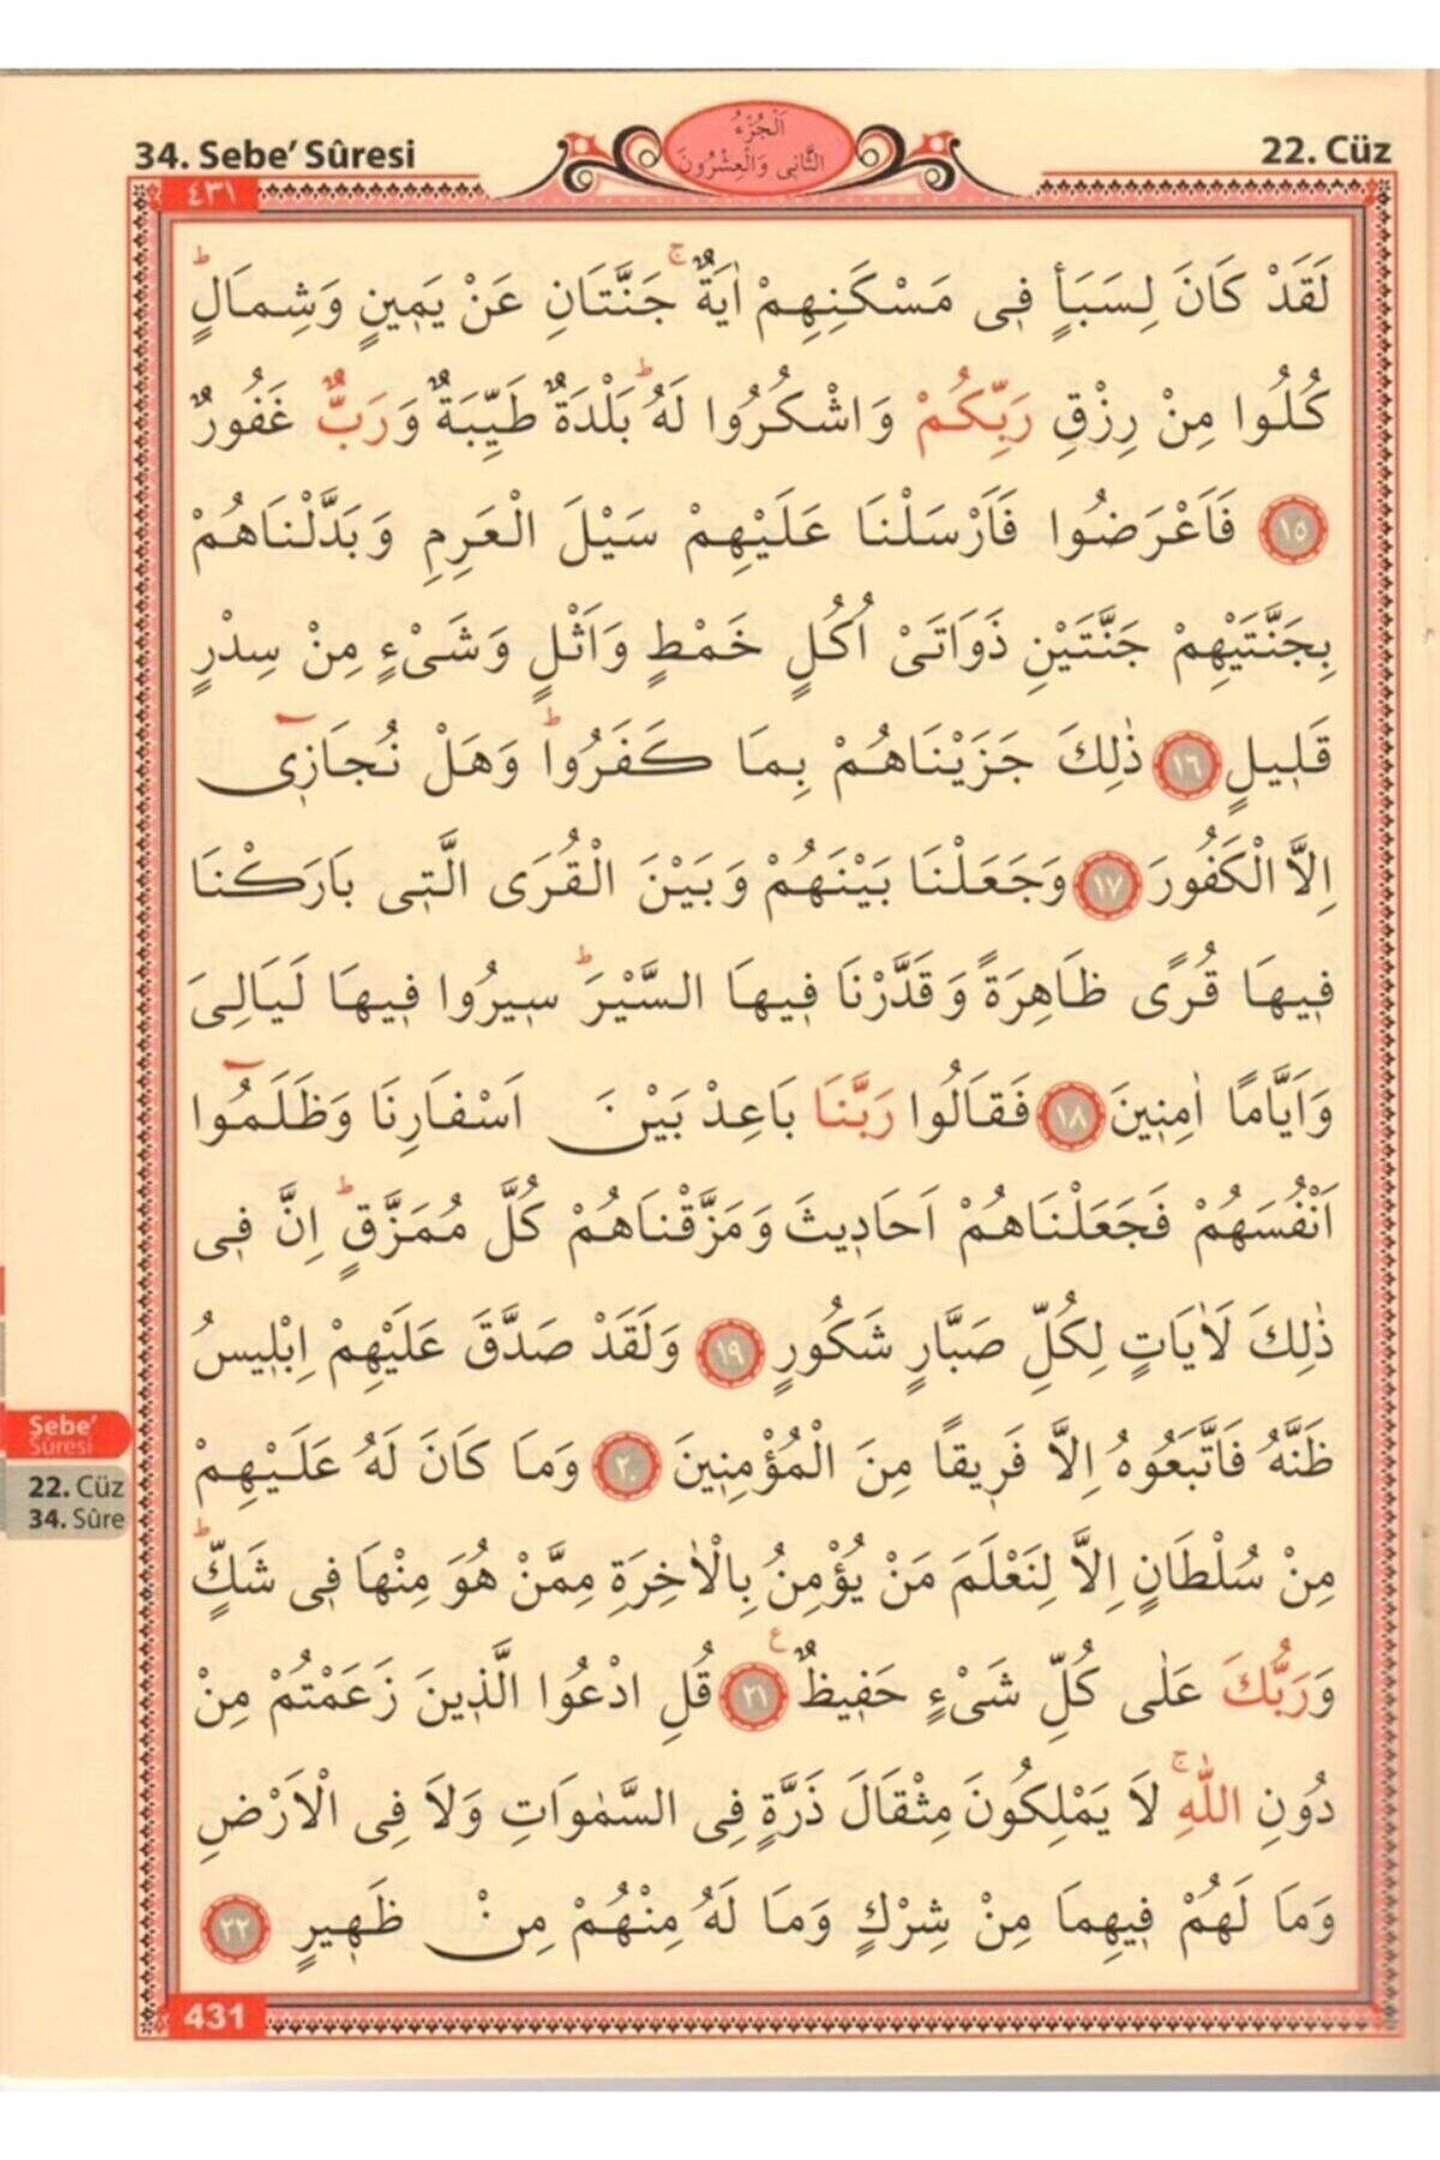 34. Sebe’ Sûresi
اَلْجُزْءُ
الثَّانِى وَالْعِشْرُونَ
22. Cüz
٤٣١
لَقَدْ كَانَ لِسَبَأٍ فٖى مَسْكَنِهِمْ اٰيَةٌۚ جَنَّتَانِ عَنْ يَمٖينٍ وَشِمَالٍؕ
كُلُوا مِنْ رِزْقِ رَبِّكُمْ وَاشْكُرُوا لَهُؕ بَلْدَةٌ طَيِّبَةٌ وَرَبٌّ غَفُورٌ
١٥ فَاَعْرَضُوا فَاَرْسَلْنَا عَلَيْهِمْ سَيْلَ الْعَرِمِ وَبَدَّلْنَاهُمْ
بِجَنَّتَيْهِمْ جَنَّتَيْنِ ذَوَاتَىْ اُكُلٍ خَمْطٍ وَاَثْلٍ وَشَىْءٍ مِنْ سِدْرٍ
قَلٖيلٍ ١٦ ذٰلِكَ جَزَيْنَاهُمْ بِمَا كَفَرُواؕ وَهَلْ نُجَازٖٓى
اِلَّا الْكَفُورَ ١٧ وَجَعَلْنَا بَيْنَهُمْ وَبَيْنَ الْقُرَى الَّتٖى بَارَكْنَا
فٖيهَا قُرًى ظَاهِرَةً وَقَدَّرْنَا فٖيهَا السَّيْرَؕ سٖيرُوا فٖيهَا لَيَالِىَ
وَاَيَّامًا اٰمِنٖينَ ١٨ فَقَالُوا رَبَّنَا بَاعِدْ بَيْنَ اَسْفَارِنَا وَظَلَمُٓوا
اَنْفُسَهُمْ فَجَعَلْنَاهُمْ اَحَادٖيثَ وَمَزَّقْنَاهُمْ كُلَّ مُمَزَّقٍؕ اِنَّ فٖى
ذٰلِكَ لَاٰيَاتٍ لِكُلِّ صَبَّارٍ شَكُورٍ ١٩ وَلَقَدْ صَدَّقَ عَلَيْهِمْ اِبْلٖيسُ
ظَنَّهُ فَاتَّبَعُوهُ اِلَّا فَرٖيقًا مِنَ الْمُؤْمِنٖينَ ٢٠ وَمَا كَانَ لَهُ عَلَيْهِمْ
مِنْ سُلْطَانٍ اِلَّا لِنَعْلَمَ مَنْ يُؤْمِنُ بِالْاٰخِرَةِ مِمَّنْ هُوَ مِنْهَا فٖى شَكٍّؕ
وَرَبُّكَ عَلٰى كُلِّ شَىْءٍ حَفٖيظٌ ٢١ ع قُلِ ادْعُوا الَّذٖينَ زَعَمْتُمْ مِنْ
دُونِ اللّٰهِۚ لَا يَمْلِكُونَ مِثْقَالَ ذَرَّةٍ فِى السَّمٰوَاتِ وَلَا فِى الْاَرْضِ
وَمَا لَهُمْ فٖيهِمَا مِنْ شِرْكٍ وَمَا لَهُ مِنْهُمْ مِنْ ظَهٖيرٍ ٢٢
Sebe’
Sûresi
22. Cüz
34. Sûre
431